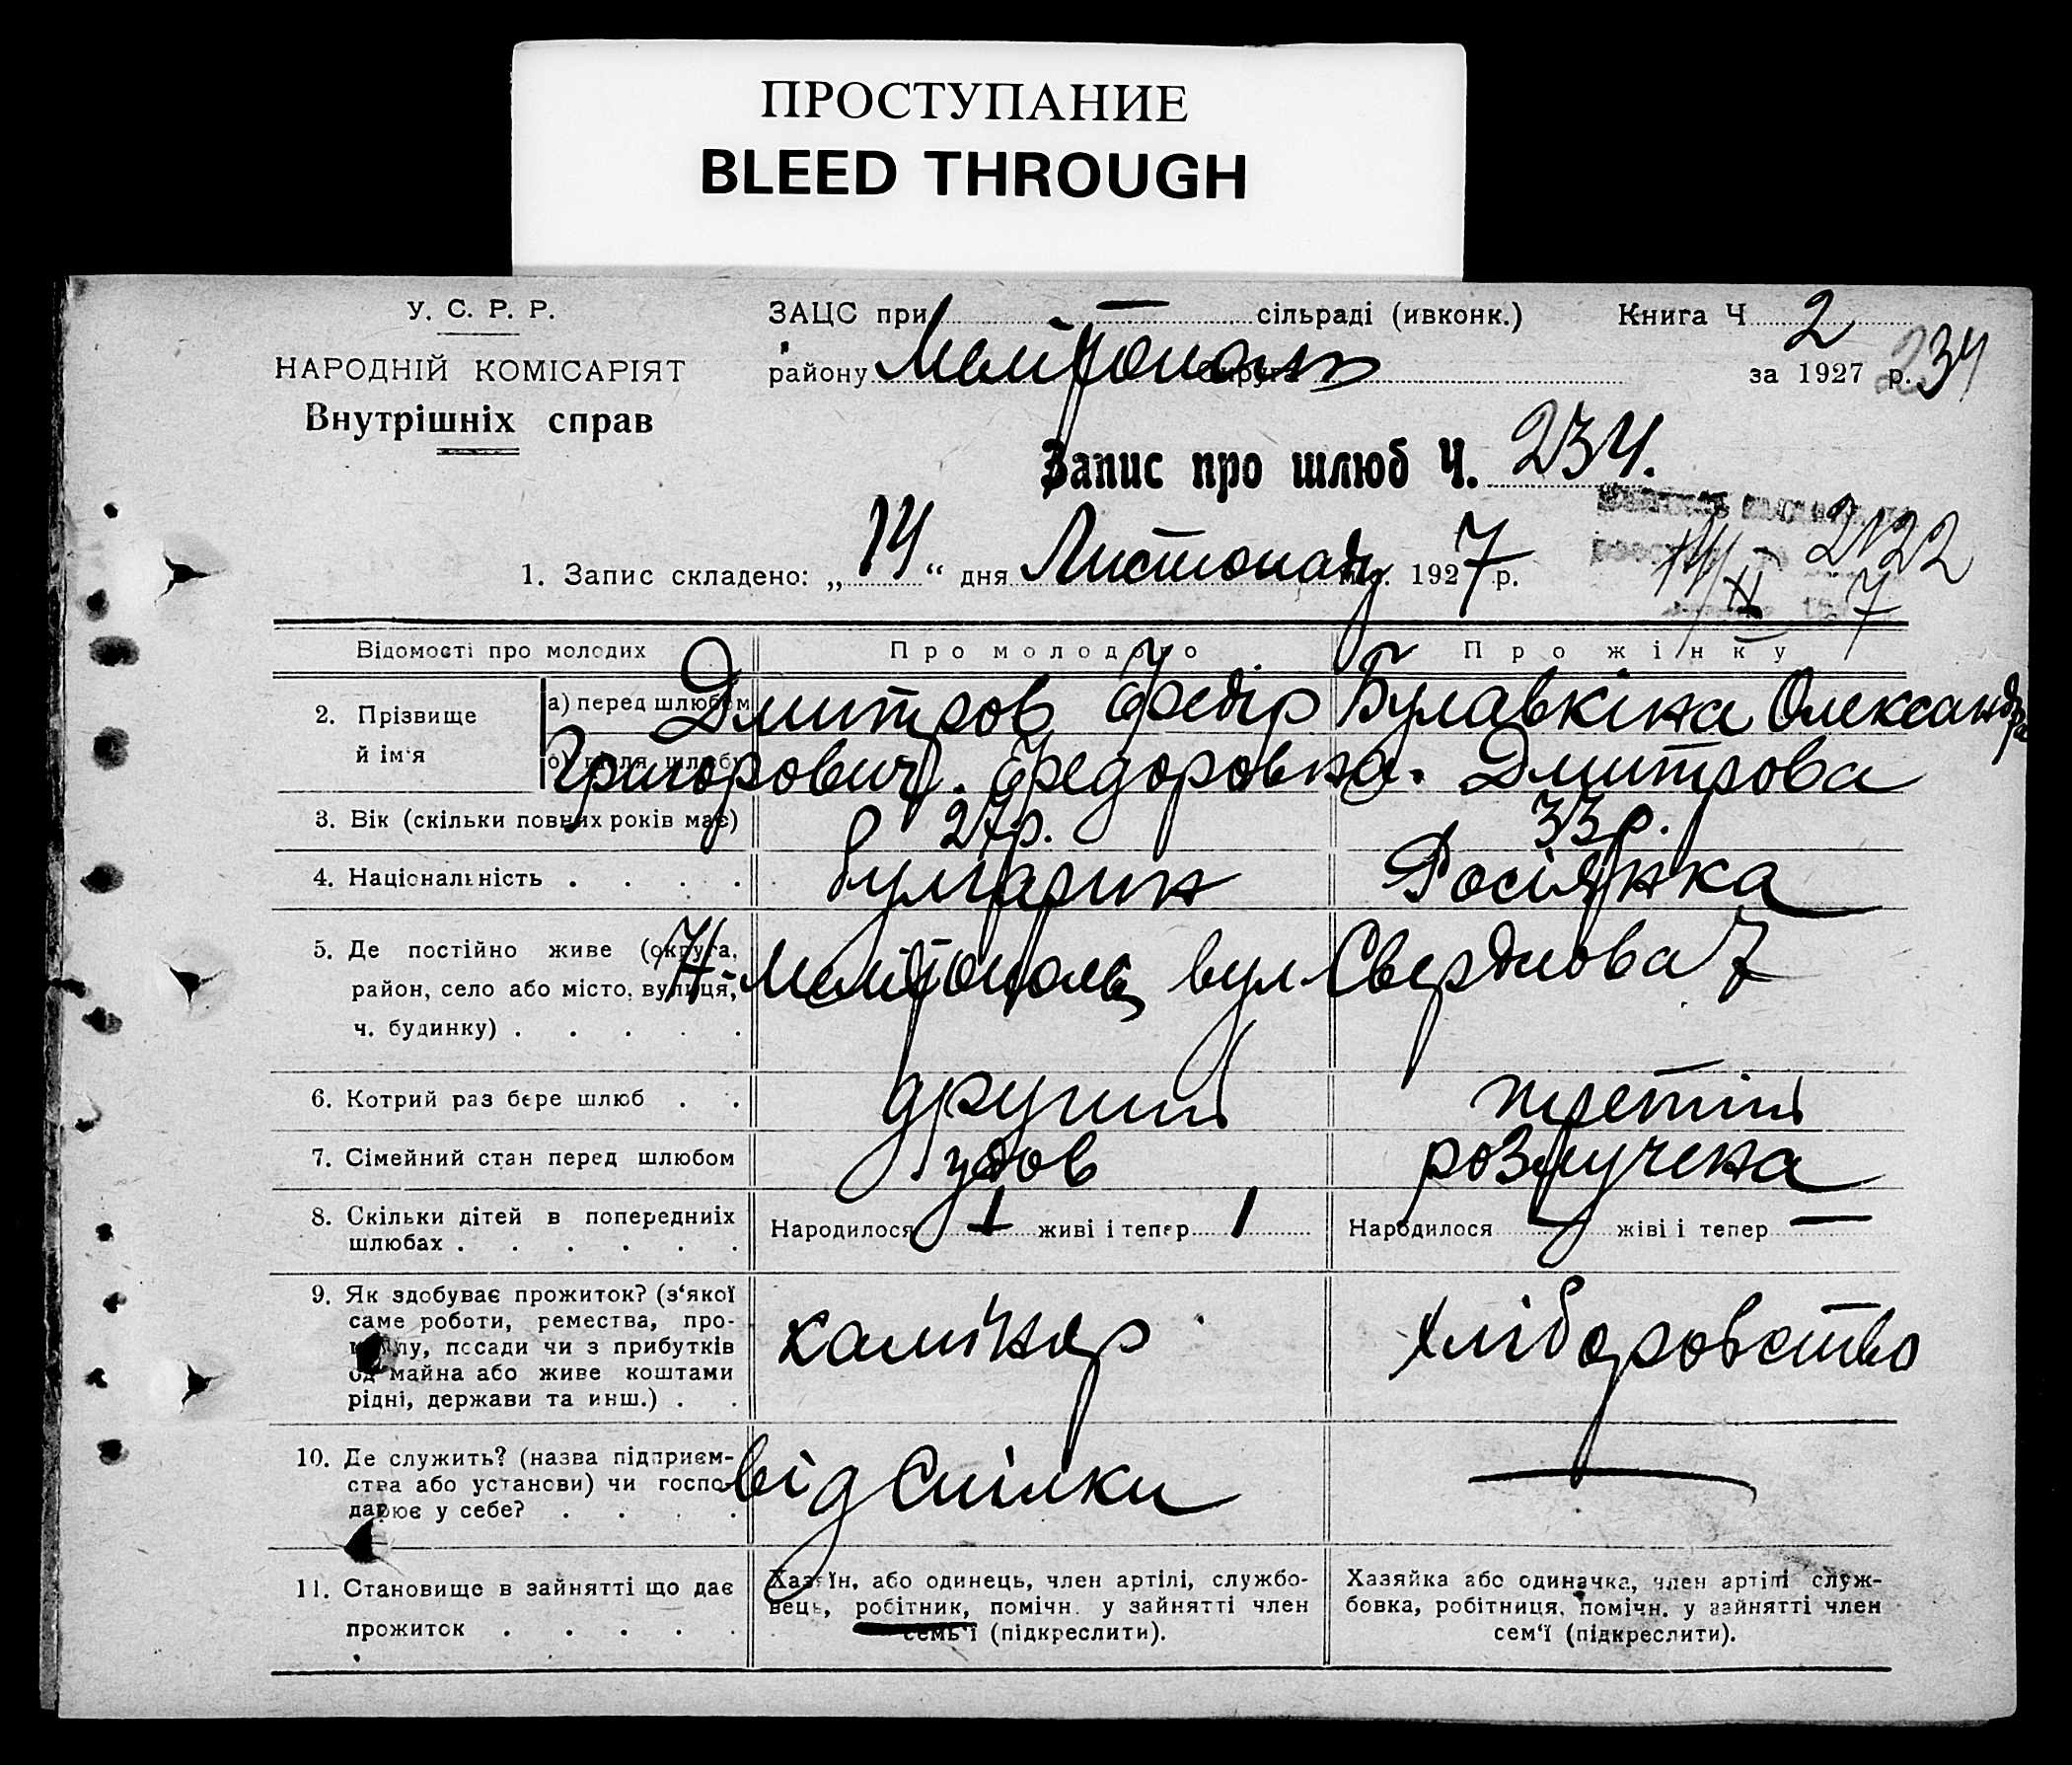 ПРОСТУПАНИЕ
BLEED THROUGH
У. С. Р. Р.
НАРОДНІЙ КОМІСАРІЯТ
Внутрішніх справ
ЗАЦС при — сільраді (ивконк.)
району Мелітополь
Книга Ч 2
за 1927 р. 234
Запис про шлюб Ч. 234.
2122
14/XI 7
1. Запис складено: „14“ дня Листопад 1927 р.
Відомості про молодих
Про молодого
Про жінку
2. Прізвище й ім‘я
а) перед шлюбом
Дмитров Федір
Булавкіна Олександра
б) після шлюбу
Григорович. Федоровна. Дмитрова
3. Вік (скільки повних років має) 27 р. 33 р.
4. Національність . . . . булгарин Росіянка
5. Де постійно живе (округа,
район, село або місто, вулиця,
ч. будинку) . . . . .
Н-Мелітополь вул Свердлова 7
6. Котрий раз бере шлюб . . другий третій
7. Сімейний стан перед шлюбом удов розлучена
8. Скільки дітей в попередниіх
шлюбах . . . . . .
Народилося 1 живі і тепер 1
Народилося — жіві і тепер —
9. Як здобуває прожиток? (з‘якої
саме роботи, ремества, про-
мислу, посади чи з прибутків
од майна або живе коштами
рідні, держави та инш.) . .
каміняр
хліборобство
10. Де служить? (назва підприєм-
ства або установи) чи госпо-
дарює у себе? . . . .
від Спілки
—
11. Становище в зайнятті що дає
прожиток . . . . .
Хазяїн, або одинець, член артілі, службо-
вець, робітник, помічн. у зайнятті член
семь‘ї (підкреслити).
Хазяйка або одиначка, член артілі служ-
бовка, робітниця, помічн. у зайнятті член
сем‘ї (підкреслити).